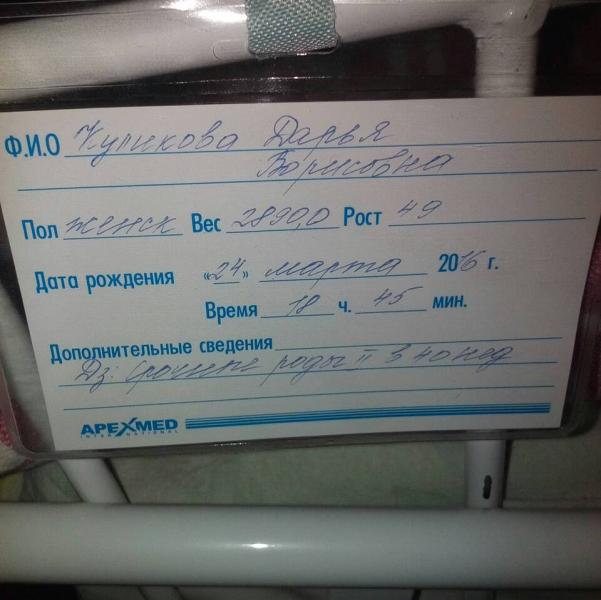 Ф.И.О Куликова Дарья
Борисовна
Пол женск Вес 2890,0 Рост 49
Дата рождения «24» марта 2016 г.
Время 18 ч. 45 мин.
Дополнительные сведения
Дз: срочные роды II в 40 нед
APEXMED
INTERNATIONAL